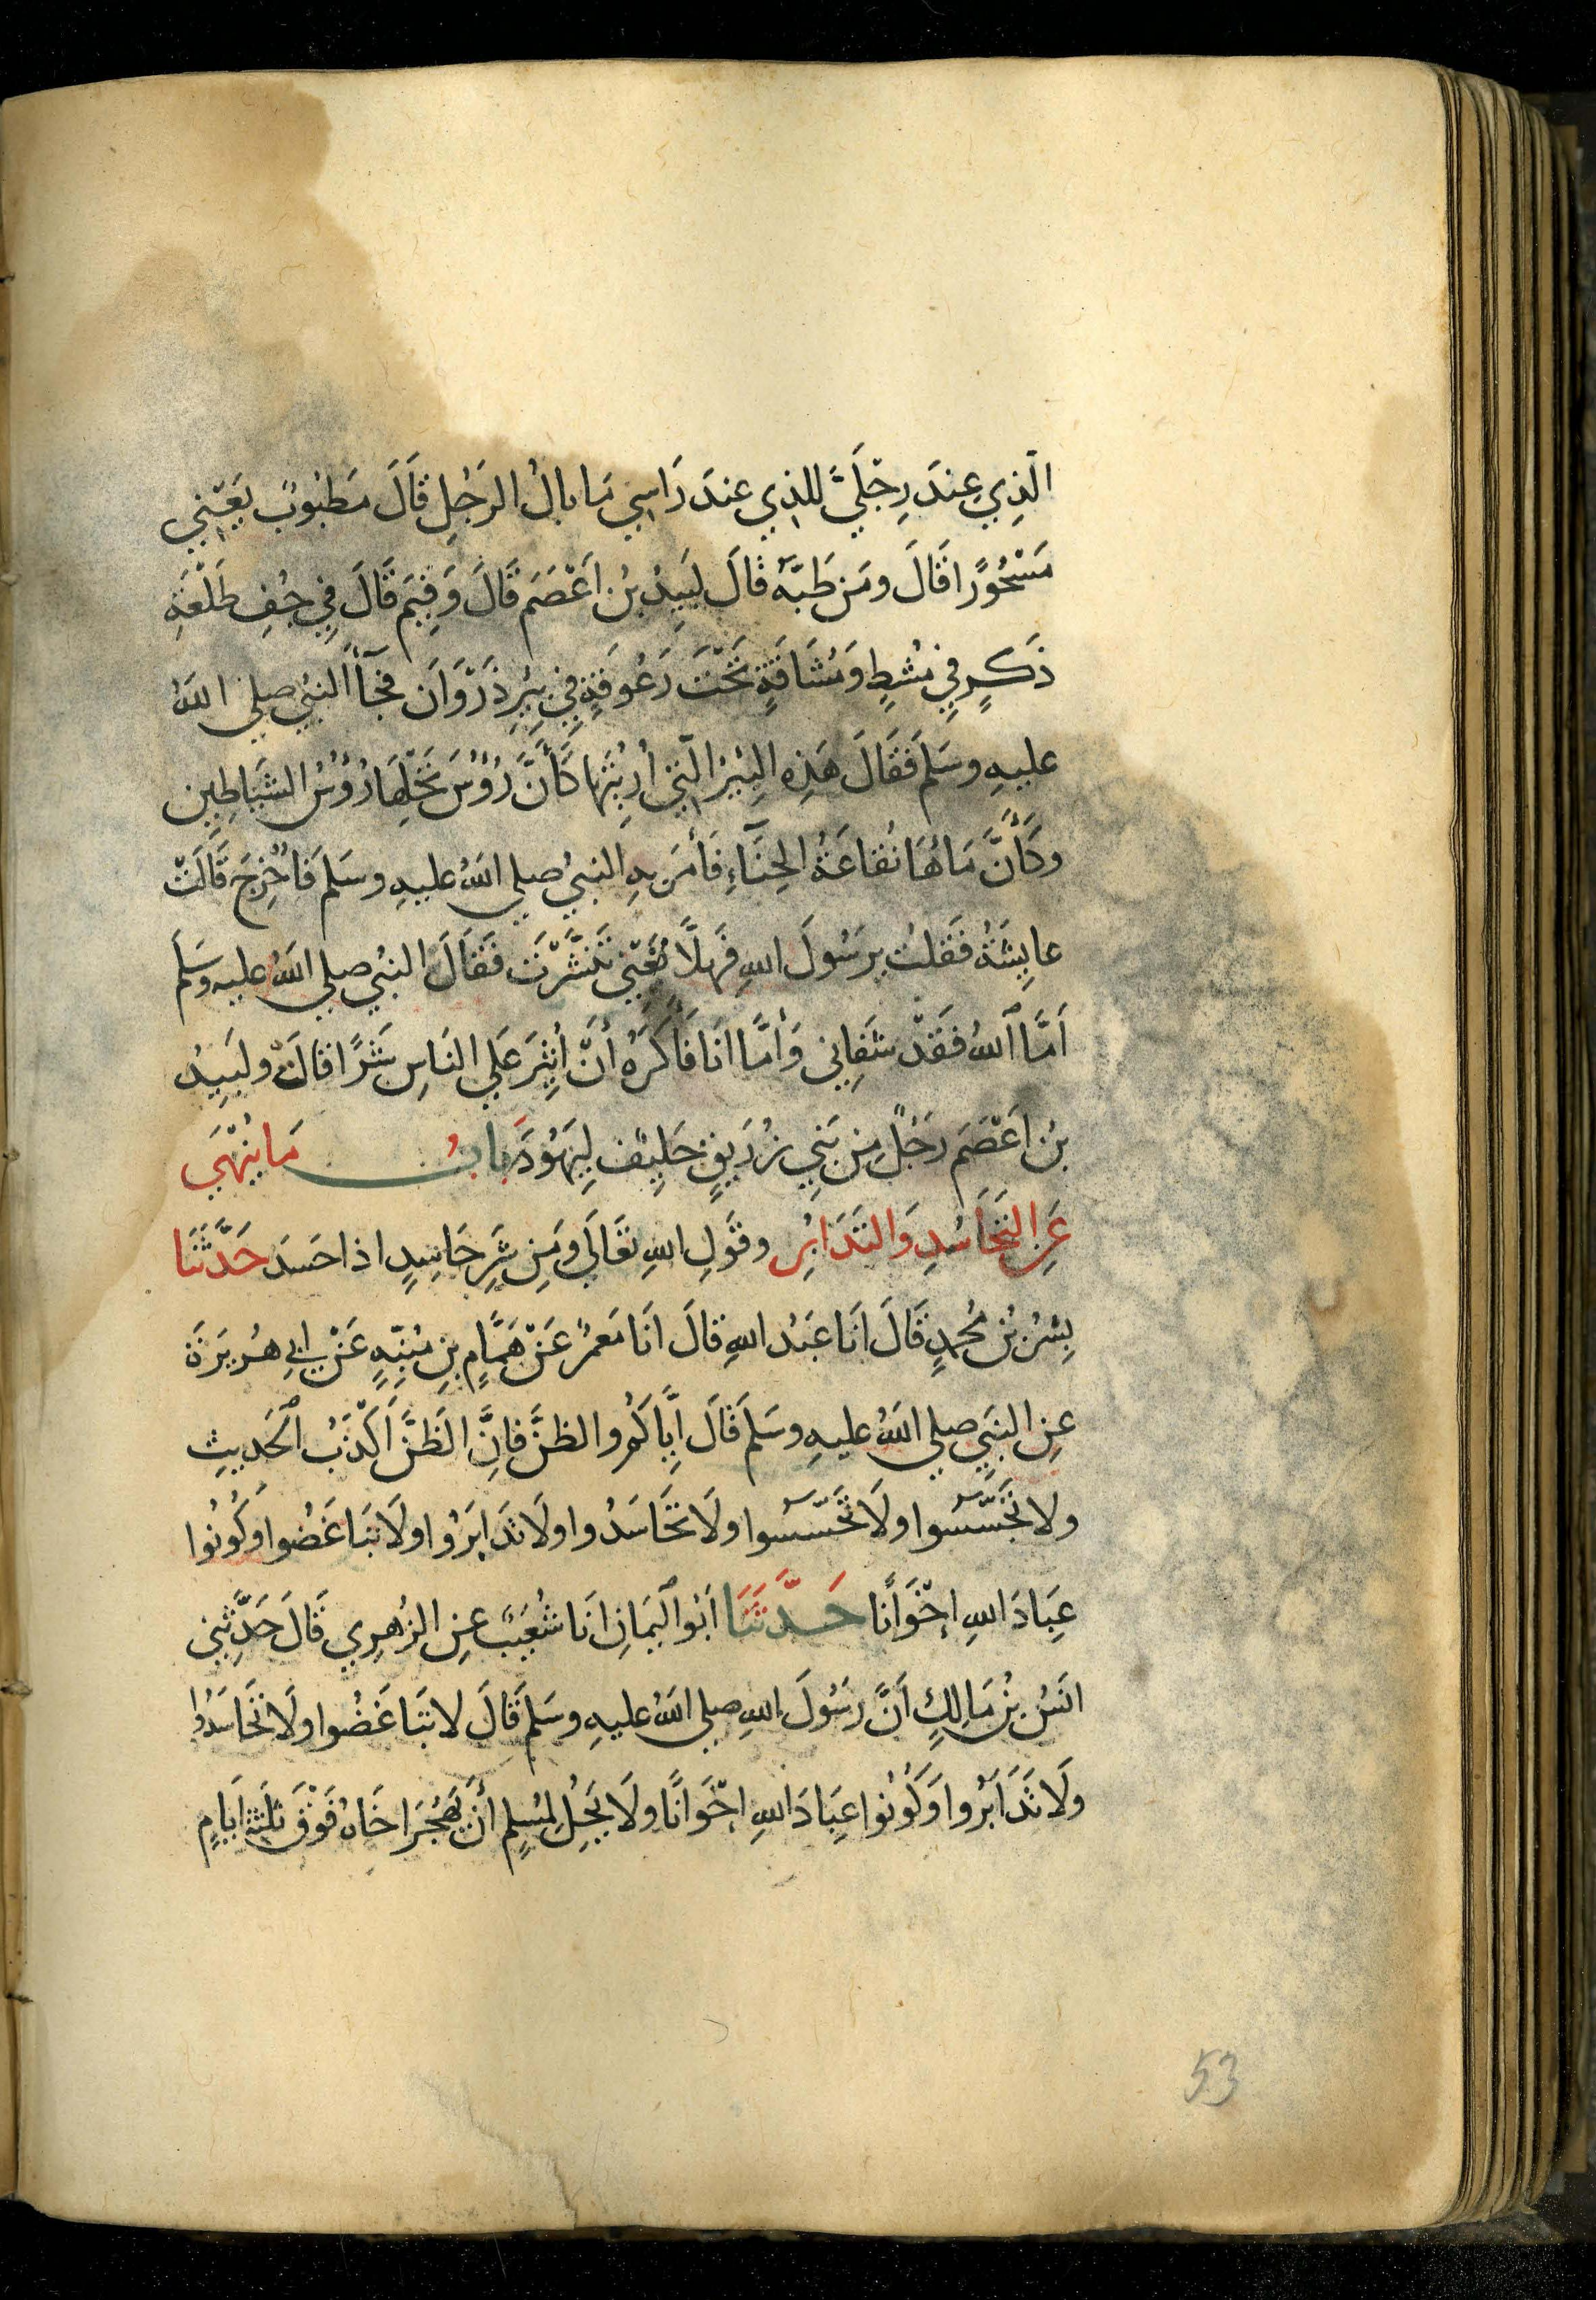 الَّذِي عِندَ رِجْلَيَّ لِلَّذِي عِندَ رَاسِي مَا بَالُ الرَجُلِ قَالَ مَطبُوبٌ يَعْنِي
مَسْحُورًا قَالَ ومَن طَبَّهُ قَالَ لَبِيدُ بنُ اَعْصَمَ قَالَ وَفِيمَ قَالَ فِي جُفِ طَلْعَةِ
ذَكَرٍ فِي مُشطٍ وَمُشَاقَةٍ تَحْتَ رَعُوفَةٍ فِي بِيرِ ذَرْوَانَ فَجَآأَ النَّبِيُ صلي اللهُ
عليهِ وسَلم فَقَالَ هَذِهِ البِيْرُ الَّتِي اُرِيتُهَا كَأَنَّ رُؤُسَ نَخْلِهَا رُؤُسُ الشَيَاطِين
وكَأَنَّ مَاءَهَا نُقَاعَةُ الحِنَّآءِ فَأَمَرَ بِهِ النَّبِيُ صلي اللهُ عليهِ وسَلم فَاُخْرِجَ قَالَتْ
عايِشَةُ فَقَلتُ يرَسُولَ اللهِ فَهَلَّا تَعْنِي تَنَشَّرْتَ فَقَالَ النَّبِيُ صلي اللهُ عليه وسَلم
اَمَّا اللهُ فَقَدْ شَفَانِي وَأَمَّا انَا فَأَكرَهُ أَنْ اُثِيرَ عَلي النَاسِ شَرًا قالَتْ ولَبِيدُ
بنُ اَعْصَمَ رَجُلٌ مِن بَنِي زُرَيقٍ حَلِيفٌ لِيَهُودَ بَابُ مَا يُنْهَي
عَنِ التَحَاسُدِ وَالتَدَابُرِ وقَولِ اللهِ تَعَالَي ومِن شَرِ حَاسِدٍ اذا حَسَدَ حَدَّثَنَا
بِشرُ بنُ مُحمدٍ قَالَ اَنَا عَبدُ اللهِ قَالَ انَا مَعمَرٌ عَنْ هَمَّامِ بنِ مُنبّهٍ عَنْ ابي هُريرَةَ
عنِ النبَيِ صلي اللهُ عليهِ وسَلم قَالَ اِيَّاكُم والظنَّ فإِنَّ الظَنَّ اَكْذَبُ الحَديثِ
ولا تَجَسَّسُوا ولَا تَحَسَّسُوا ولَا تَحَاسَدُوا ولا تَدَابَرُوا ولَا تَبَاغَضُوا وَكُونُوا
عِبَادَ اللهِ اِخْوَانًا حَدَّثَنَا اَبُو اليَمَانِ انَا شُعَيبٌ عنِ الزُهرِي قَالَ حَدَّثنِي
انَسُ بنُ مَالِكٍ اَنَّ رَسُولَ اللهِ صلي اللهُ عليهِ وسَلم قَالَ لا تبَاغَضُوا ولَا تحَاسَدُوا
ولَا تَدَابَرُوا وَكُونُوا عِبَادَ اللهِ اِخْوَانًا ولَا يَحِلُ لِمُسْلِمٍ أَنْ يَهْجُرَ اخَاهُ فَوْقَ ثلثَةِ اَيامٍ
53